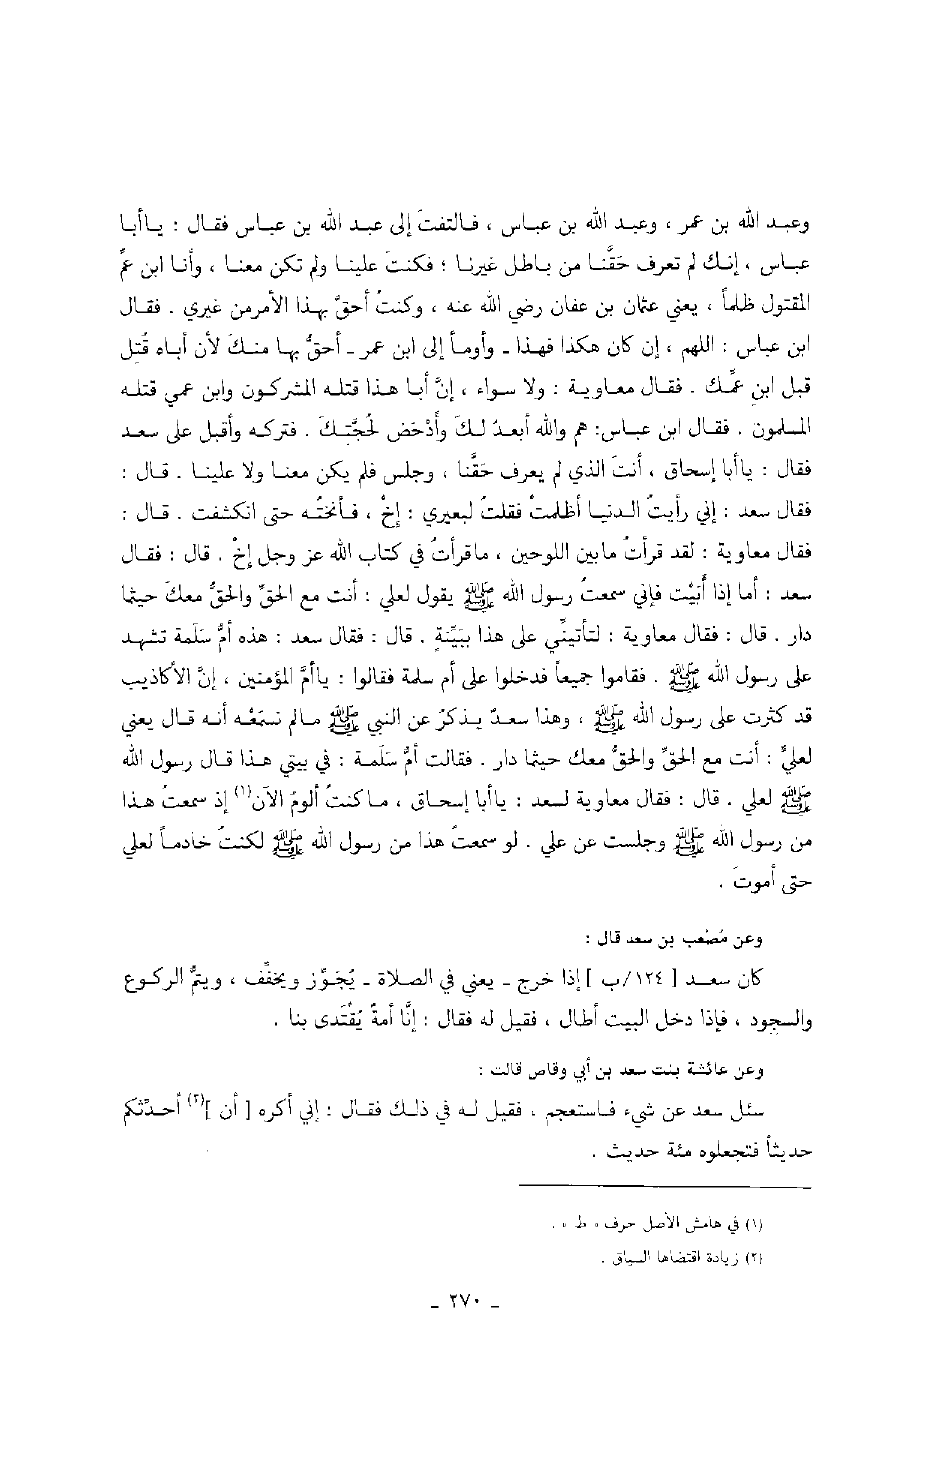 وعبد الله بن عمر ، وعبد الله بن عباس ، فالتفتَ إلى عبد الله بن عباس فقال : ياأبا
عباس ، إنك لم تعرف حَقَّنا من باطل غيرنا ؛ فكنتَ علينا ولم تكن معنا ، وأنا ابن عمِّ
المقتول ظلماً ، يعني عثمان بن عفان رضي الله عنه ، وكنتُ أحقَّ بهذا الأمر من غيري . فقال
ابن عباس : اللهم ، إن كان هكذا فهذا ـ وأومأ إلى ابن عمر ـ أحقُّ بها منكَ لأن أباه قُتِل
قبل ابنِ عمِّك . فقال معاوية : ولا سواء ، إنَّ أبا هذا قتله المشركون وابن عمي قتله
المسلمون . فقال ابن عباس : هم والله أبعدُ لكَ وأَدْحَض لحُجَّتِكَ . فتركه وأقبل على سعد
فقال : ياأبا إسحاق ، أنتَ الذي لم يعرف حَقَّنا ، وجلس فلم يكن معنا ولا علينا . قال :
فقال سعد : إني رأيتُ الدنيا أظلمتْ فقلتُ لبعيري : إخْ ، فأنختُه حتى انكشفت . قال :
فقال معاوية : لقد قرأتُ مابين اللوحين ، ماقرأتُ في كتاب الله عز وجل إخْ . قال : فقال
سعد : أما إذا أَبَيْت فإني سمعتُ رسول الله ﷺ يقول لعلي : أنت مع الحقِّ والحقُّ معكَ حيثما
دار . قال : فقال معاوية : لتأتينِّي على هذا ببَيِّنةٍ . قال : فقال سعد : هذه أمُّ سَلَمة تشهد
على رسول الله ﷺ . فقاموا جميعاً فدخلوا على أم سلمة فقالوا : ياأمَّ المؤمنين ، إنَّ الأكاذيب
قد كثرت على رسول الله ﷺ ، وهذا سعدٌ يذكرُ عن النبي ﷺ مالم نسمَعْه أنه قال يعني
لعليٍّ : أنت مع الحقِّ والحقُّ معك حيثما دار . فقالت أمُّ سَلَمة : في بيتي هذا قال رسول الله
ﷺ لعلي . قال : فقال معاوية لسعد : ياأبا إسحاق ، ماكنتُ ألومُ الآن(١) إذ سمعتُ هذا
من رسول الله ﷺ وجلست عن علي . لو سمعتُ هذا من رسول الله ﷺ لكنتُ خادماً لعلي
حتى أموتَ .
وعن مُصْعب بن سعد قال :
كان سعد [ ١٢٤/ب ] إذا خرج ـ يعني في الصلاة ـ يُجَوِّز ويخفِّف ، ويتمُّ الركوع
والسجود ، فإذا دخل البيت أطال ، فقيل له فقال : إنَّا أمةٌ يُقْتَدى بنا .
وعن عائشة بنت سعد بن أبي وقاص قالت :
سئل سعد عن شيء فاستعجم ، فقيل له في ذلك فقال : إني أكره [ أن ](٢) أحدِّثكم
حديثاً فتجعلوه مئة حديث .
(١) في هامش الأصل حرف « ط » .
(٢) زيادة اقتضاها السياق .
ـ ٢٧٠ ـ